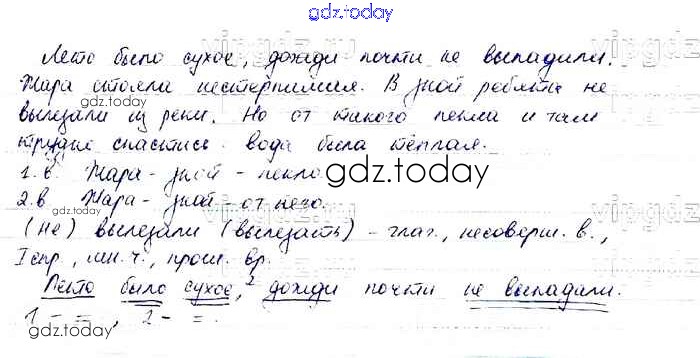 gdz.today
Лето было сухое, дожди почти не выпадали.
Жара стояла нестерпимая. В зной ребята не
gdz.today
вылезали из реки. Но от такого пекла и там
трудно спастись вода была тёплая.
1.в. Жара - зной - пекло.
gdz.today
2.в Жара - зной - от него.
(не) вылезали (вылезать) - глаг., несоверш. в.,
I спр., мн. ч., прош. вр.
Лето было сухое, 2 дожди почти не выпадали.
1 - =, 2 - =.
gdz.today
gdz.today
vipgdz.ru